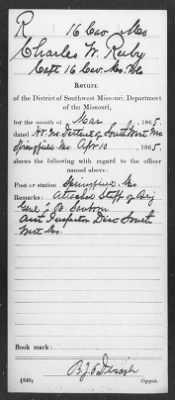 R 16 Cav Mo
Charles W. Ruby
Capt 16 Cav. Mo. Vols
Return
of the District of Southwest Missouri, Department
of the Missouri,
for the month of Mar, 1865.
dated Hd. Qrs District of South West Mo
Springfield Mo Apr 10, 1865,
shows the following with regard to the officer
named above:
Post or station Springfield, Mo
Remarks: Attached Staff of Brig
Genl J. B. Sanborn
Asst Inspector Dist South
West Mo.
Book mark:
(548) Copyist.